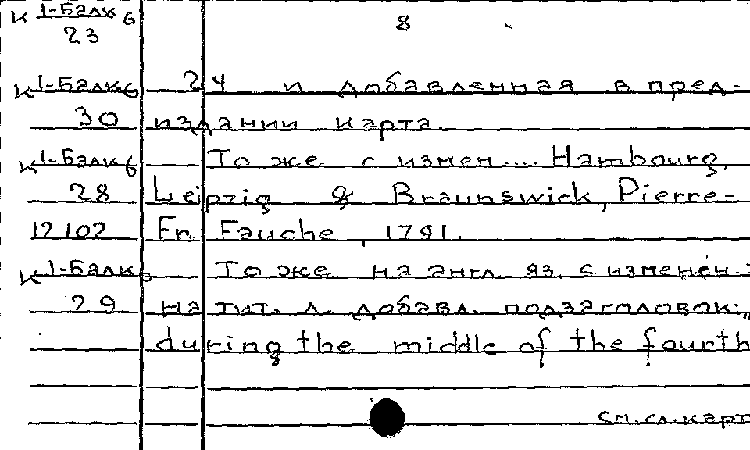 К 1-Балк 6 8
23
К 1-Балк 6 24 и добавленная в пред-
30 издании карта.
К 1-Балк 6 То же с измен.... Hambourg,
28 Leipzig & Braunswick, Pierre-
12102 Fr. Fauche, 1791.
К 1-Балк 6 То же на англ. яз. с изменен.:
29 на тит. л. добавл. подзаголовок: „
during the middle of the fourth
см. сл. карт